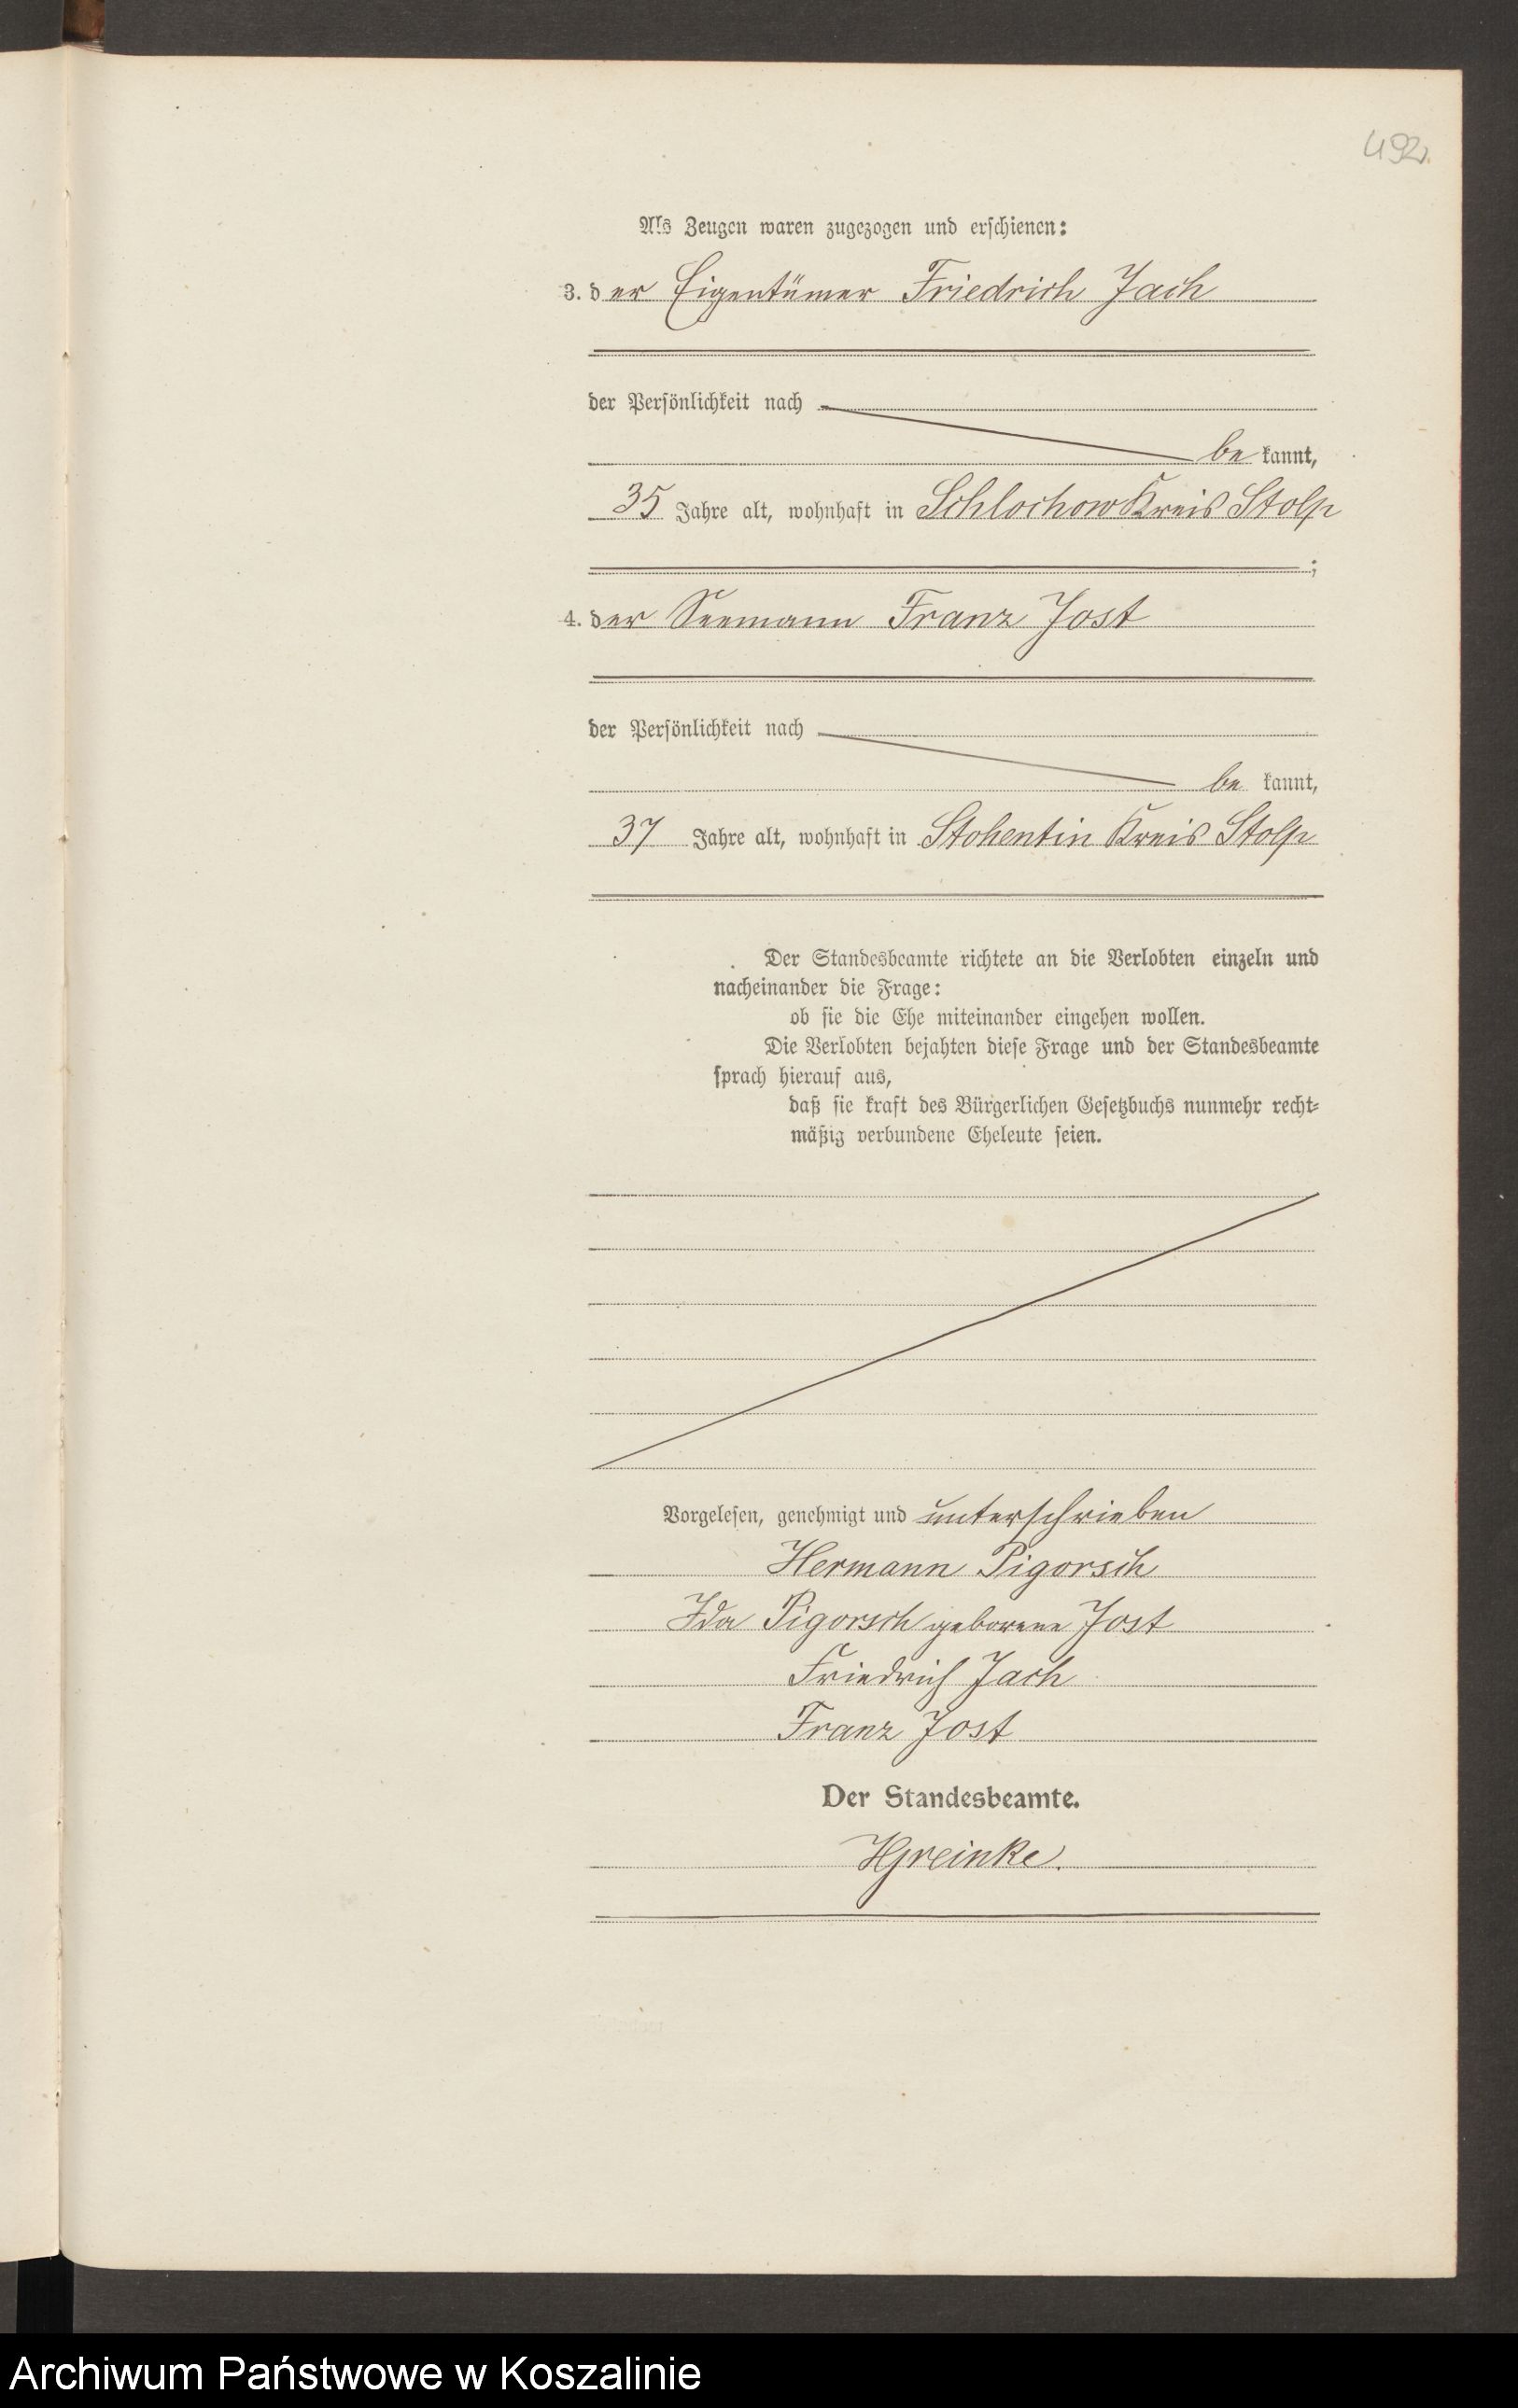 492.
Als Zeugen waren zugezogen und erschienen:
3. der Eigentümer Friedrich Jach
der Persönlichkeit nach
be kannt,
35 Jahre alt, wohnhaft in Schlochow Kreis Stolp
;
4. der Seemann Franz Jost
der Persönlichkeit nach
be kannt,
37 Jahre alt, wohnhaft in Stohentin Kreis Stolp
Der Standesbeamte richtete an die Verlobten einzeln und
nacheinander die Frage:
ob sie die Ehe miteinander eingehen wollen.
Die Verlobten bejahten diese Frage und der Standesbeamte
sprach hierauf aus,
daß sie kraft des Bürgerlichen Gesetzbuchs nunmehr recht-
mäßig verbundene Eheleute seien.
Vorgelesen, genehmigt und unterschrieben
Hermann Pigorsch
Ida Pigorsch geborene Jost
Friedrich Jach
Franz Jost
Der Standesbeamte.
HGreinke.
Archiwum Państwowe w Koszalinie